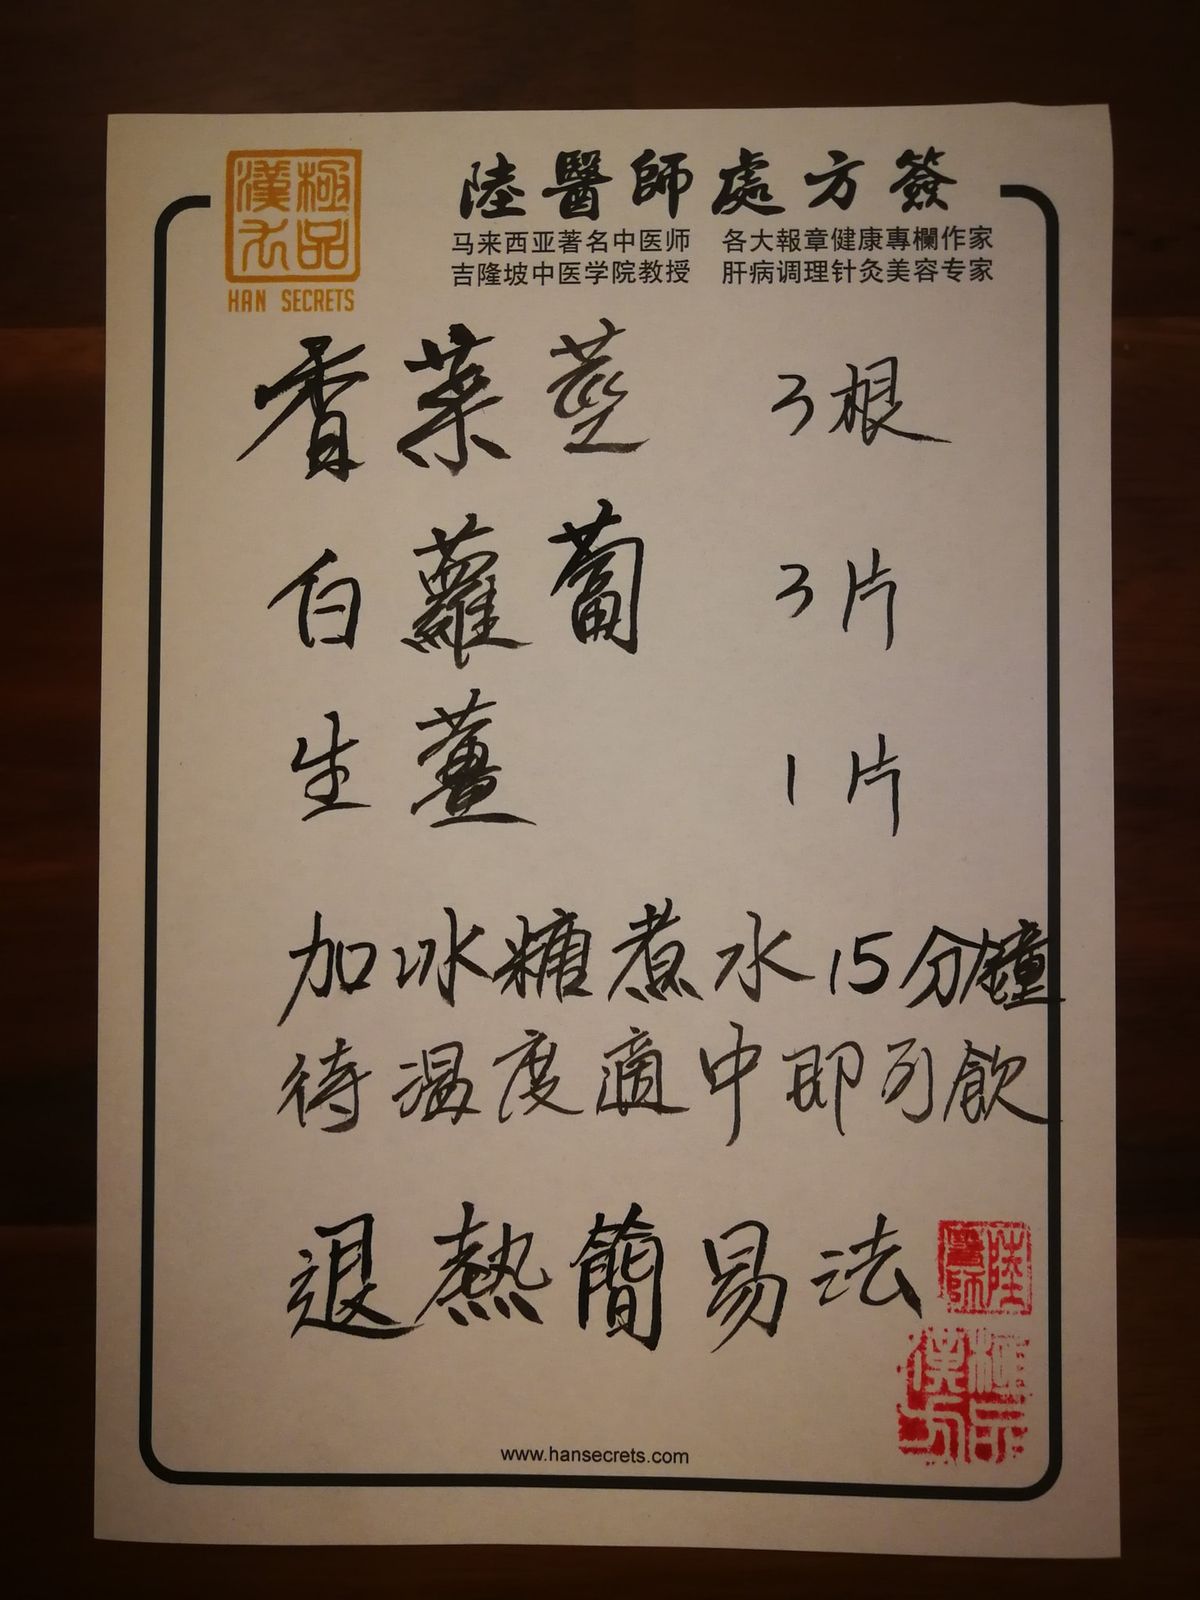 極品漢方
HAN SECRETS
陸醫師處方簽
马来西亚著名中医师 各大報章健康專欄作家
吉隆坡中医学院教授 肝病调理针灸美容专家
香菜莖 3根
白蘿蔔 3片
生薑 1片
加冰糖煮水15分鐘
待温度適中即可飲
退熱簡易法
陸醫師
極品漢方
www.hansecrets.com